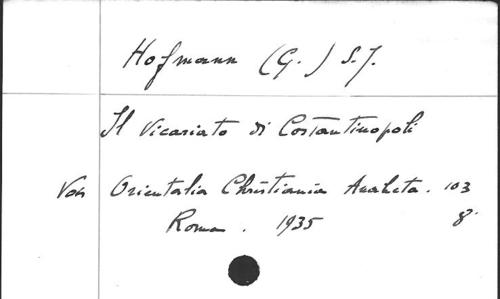 Hofmann (G.) S.J.
Il Vicariato di Costantinopoli
Von Orientalia Christiania Analecta. 103
Roma. 1935 8°